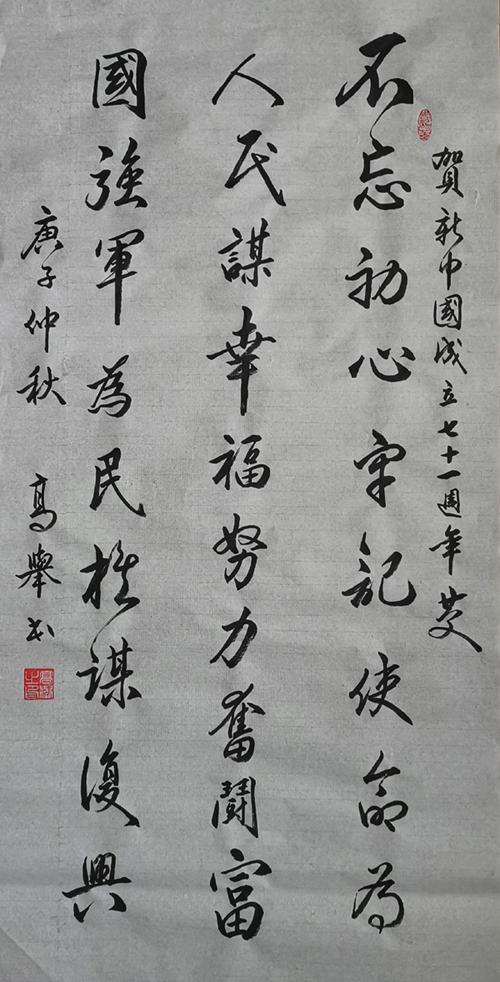 賀新中國成立七十一週年慶
不忘初心牢記使命為
人民謀幸福努力奮鬪富
國強軍為民族謀復興
庚子仲秋 高舉书